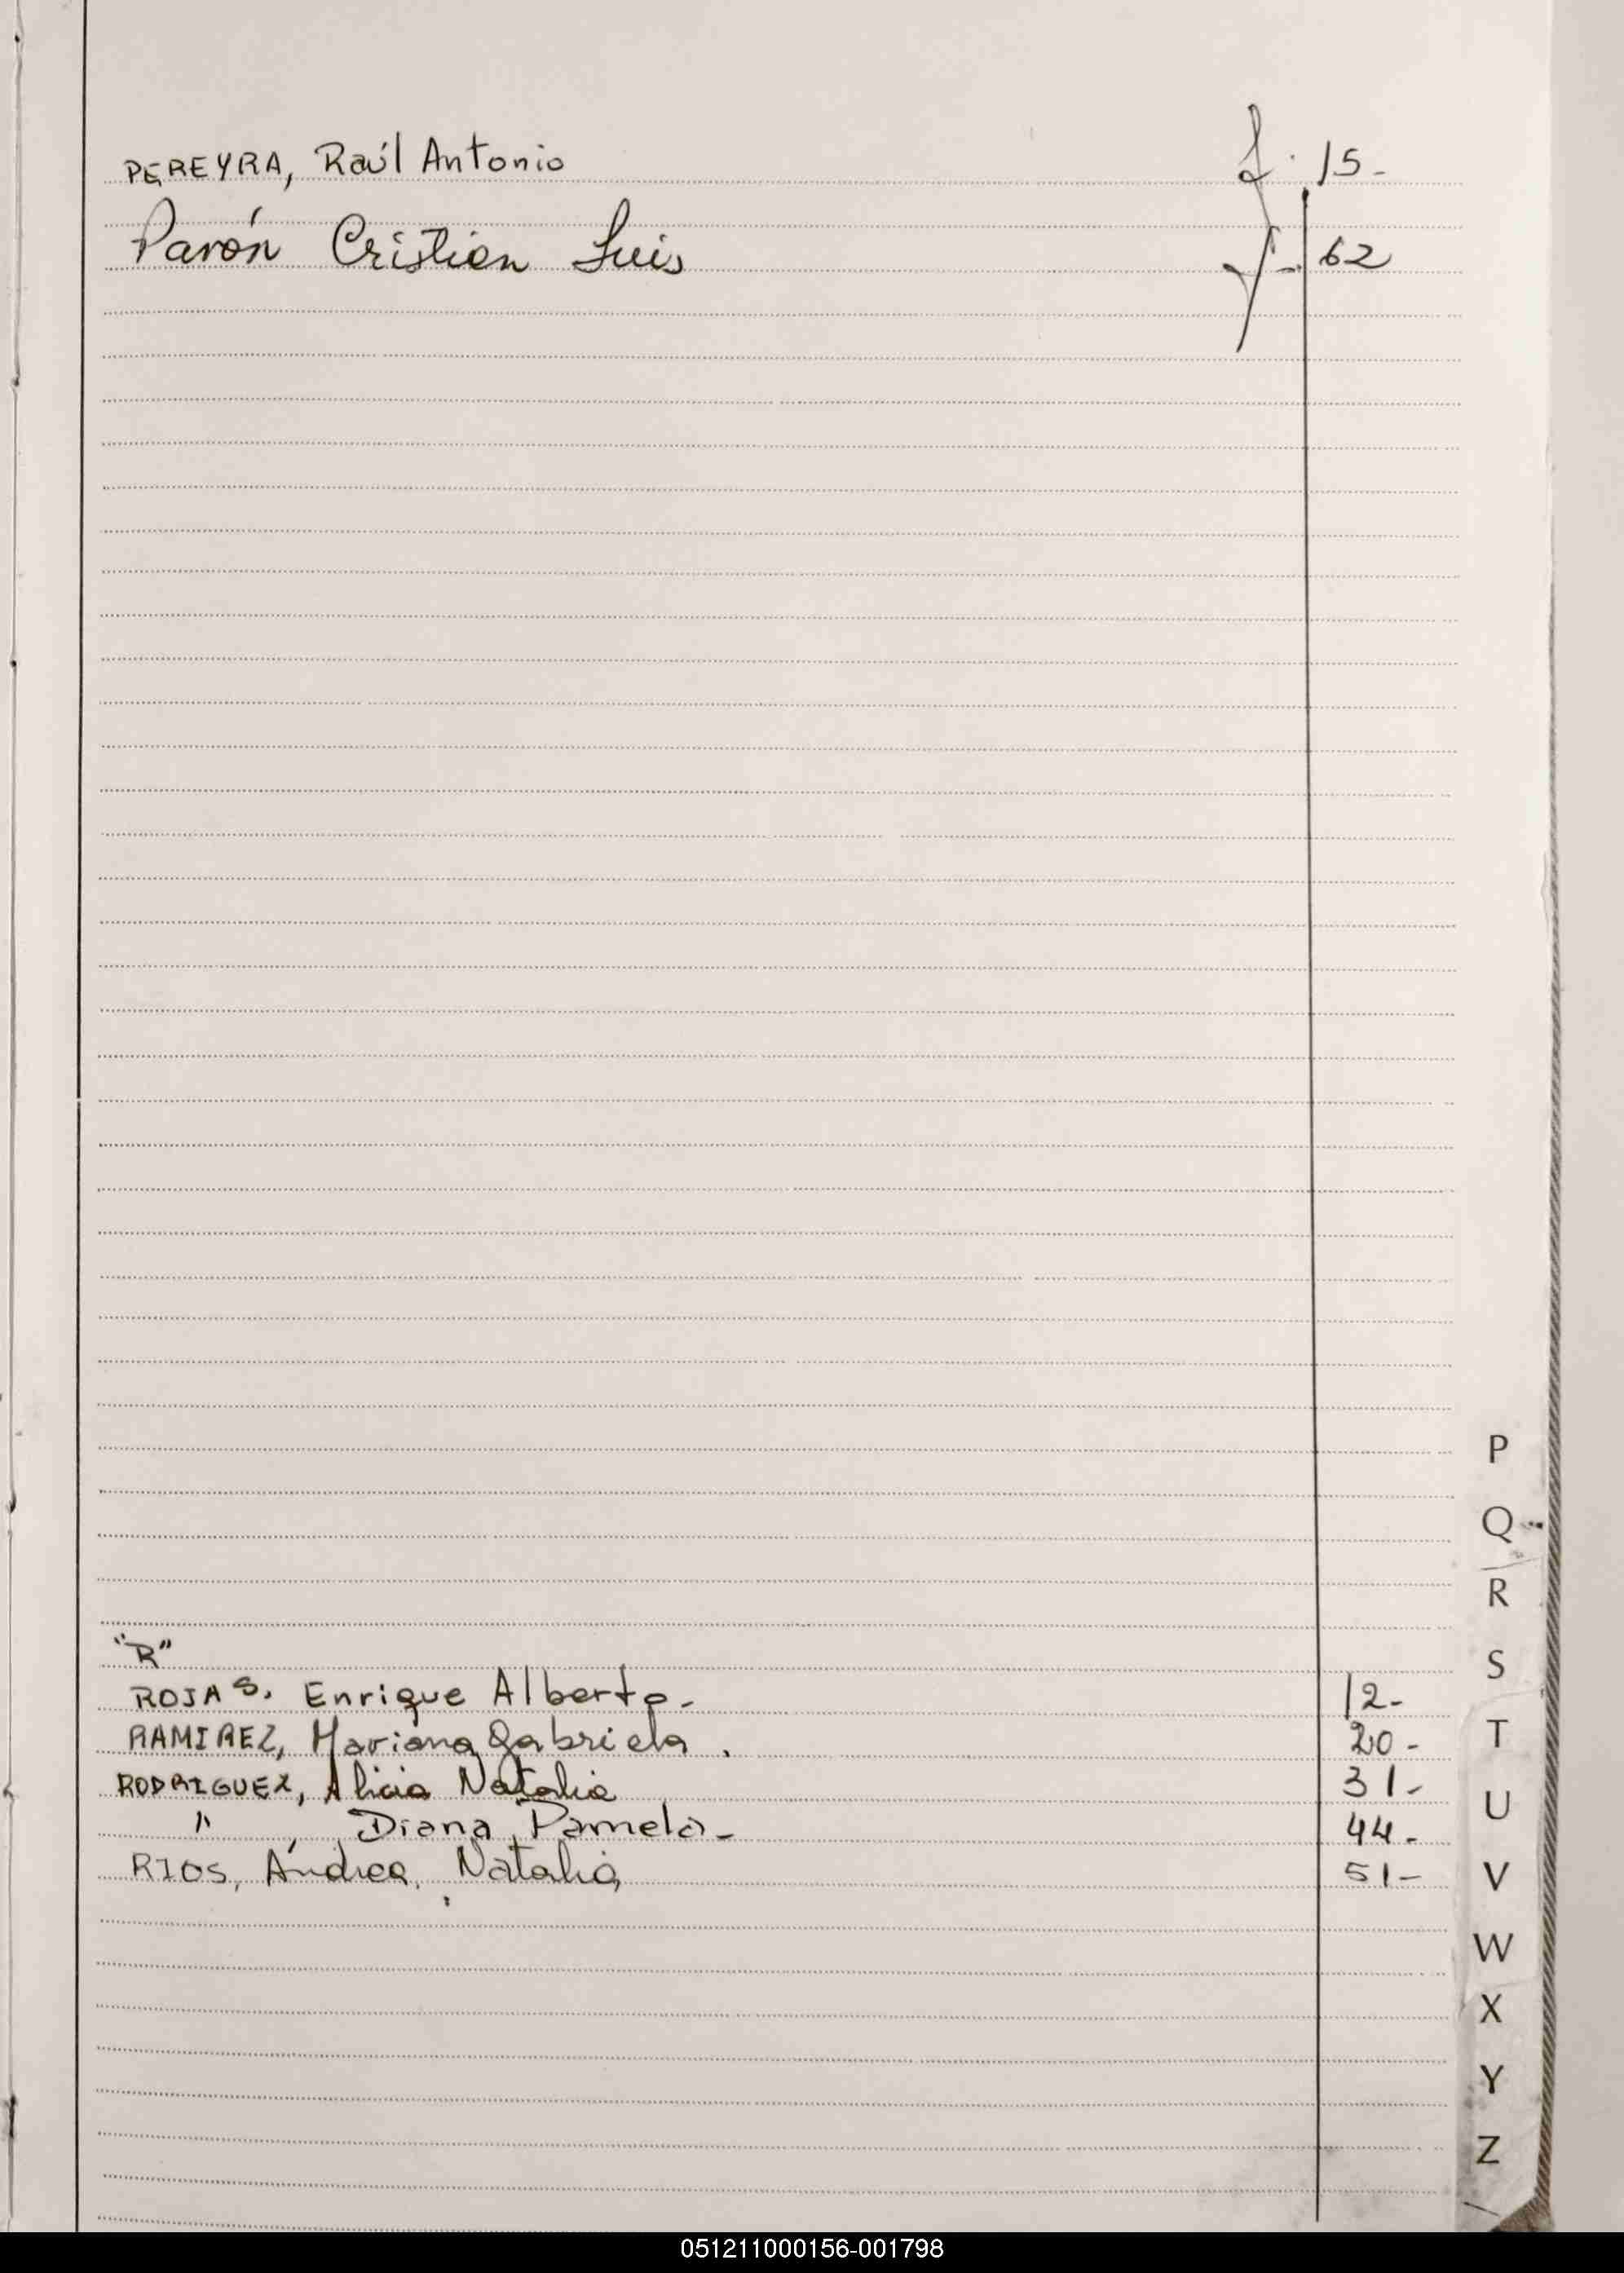 PEREYRA, Raúl Antonio f. 15-
Pavón Cristian Luis f- 62
P
Q
R
S
"R"
ROJAS. Enrique Alberto- 12-
RAMIREZ, Mariana Gabriela. 20-
T
RODRIGUEZ, Alicia Natalia 31-
U
" , Diana Pamela- 44-
RIOS, Andrea, Natalia 51-
V
W
X
Y
Z
051211000156-001798